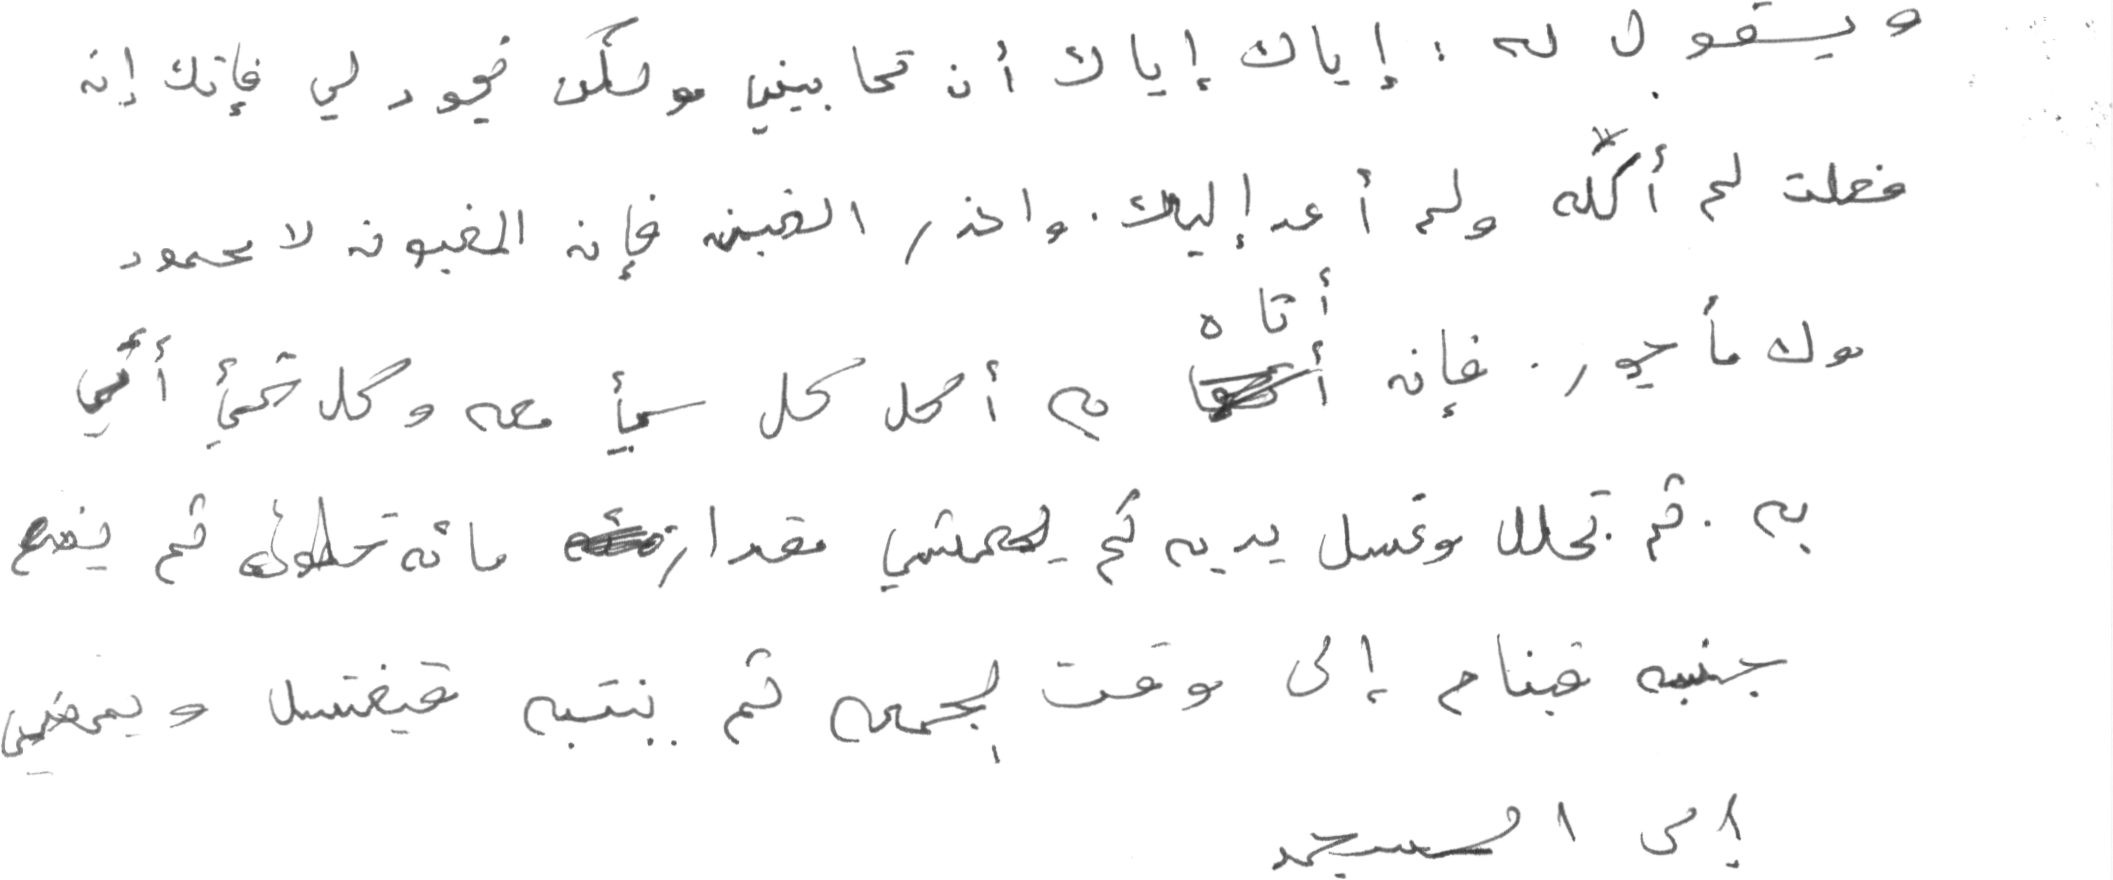 ويقول له : إياك إياك أن تحابيني ولكن فجود لي فإنك إن
فعلت لم أكله ولم أعد إليك . واحذر الغبن فإن المغبون لا محمود
ولا مأجور . فإن أتاه به أكل كل شيء معه وكل شيء أتي
به . ثم تخلل وغسل يديه ثم يتمشى مقدار مائة خطوة ثم يضع
جنبه فينام إلى وقت الجمعه ثم ينتبه فيغتسل ويمضي
إلى المسجد